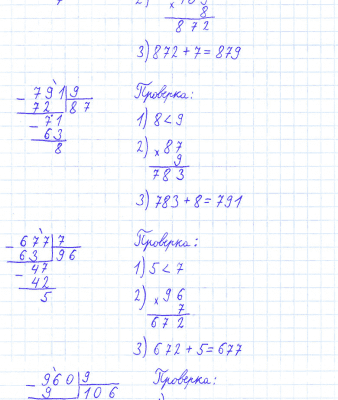 8
8 7 2
3) 872 + 7 = 879
791 | 9
72 | 87
71
63
8
Проверка:
1) 8 < 9
2) × 87
9
783
3) 783 + 8 = 791
677 | 7
63 | 96
47
42
5
Проверка:
1) 5 < 7
2) × 96
7
672
3) 672 + 5 = 677
960 | 9
9 | 106
Проверка: